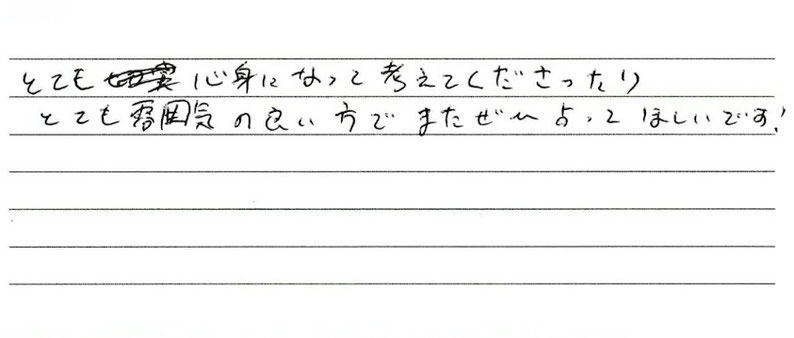 とても心身になって考えてくださったり
とても雰囲気の良い方でまたぜひよってほしいです!